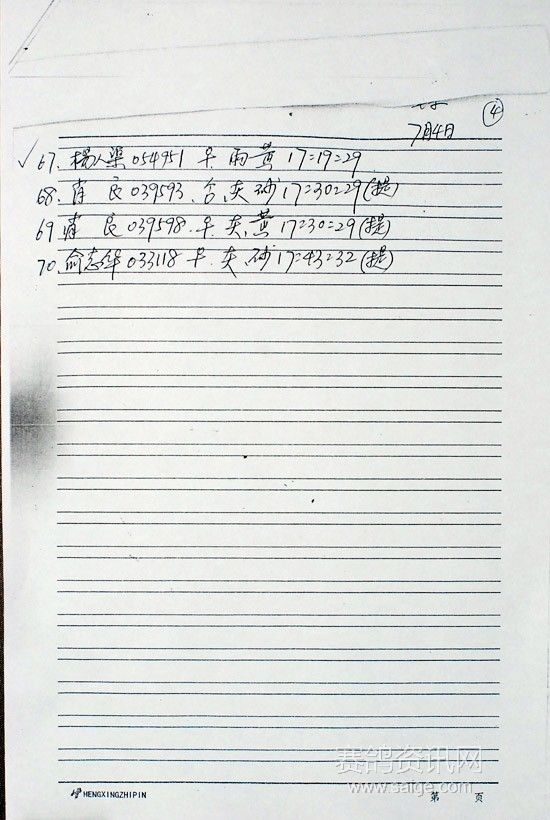 ④
7月4日
✓67. 杨人渠 054951 早 雨 黄 17=19=29
68. 肖 良 039593. 合. 灰 砂 17=30=29(提)
69 肖 良 039598. 早. 灰. 黄 17=30=29(提)
70. 俞志华 033118 早. 灰. 砂 17=43=32(提)
赛鸽资讯网
www.saige.com
HENGXINGZHIPIN
第 页